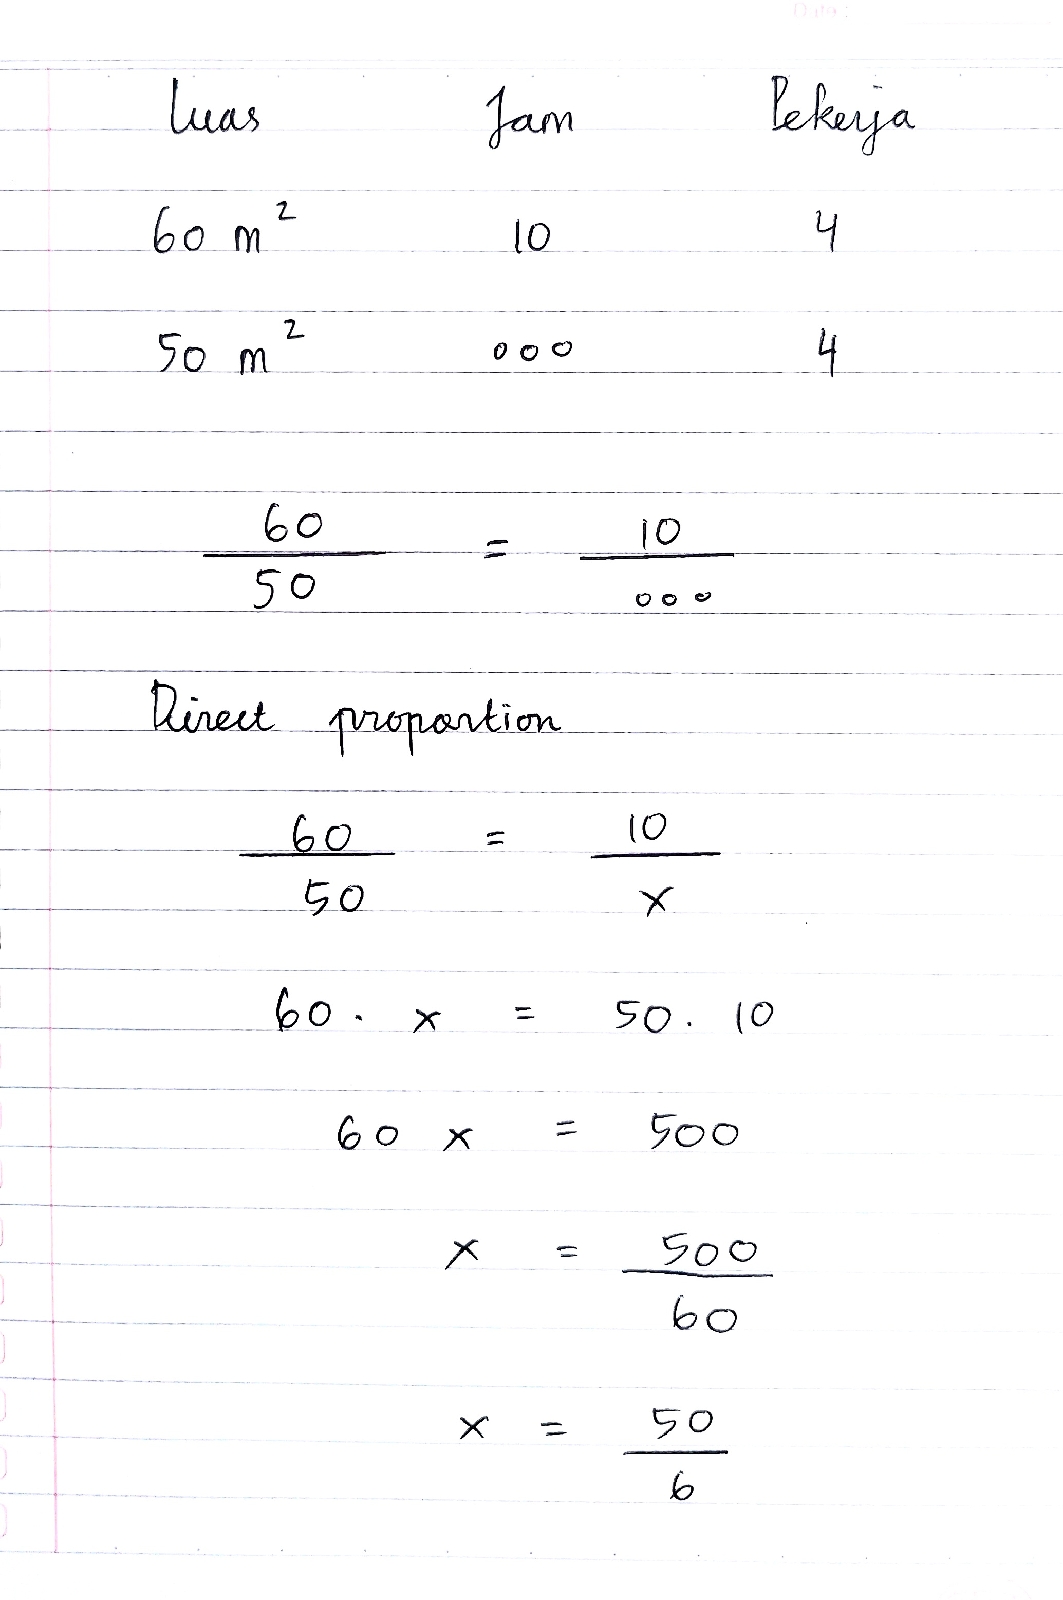 Luas Jam Pekerja
60 m² 10 4
50 m² ooo 4
60/50 = 10/ooo
Direct proportion
60/50 = 10/x
60 . x = 50 . 10
60 x = 500
x = 500/60
x = 50/6